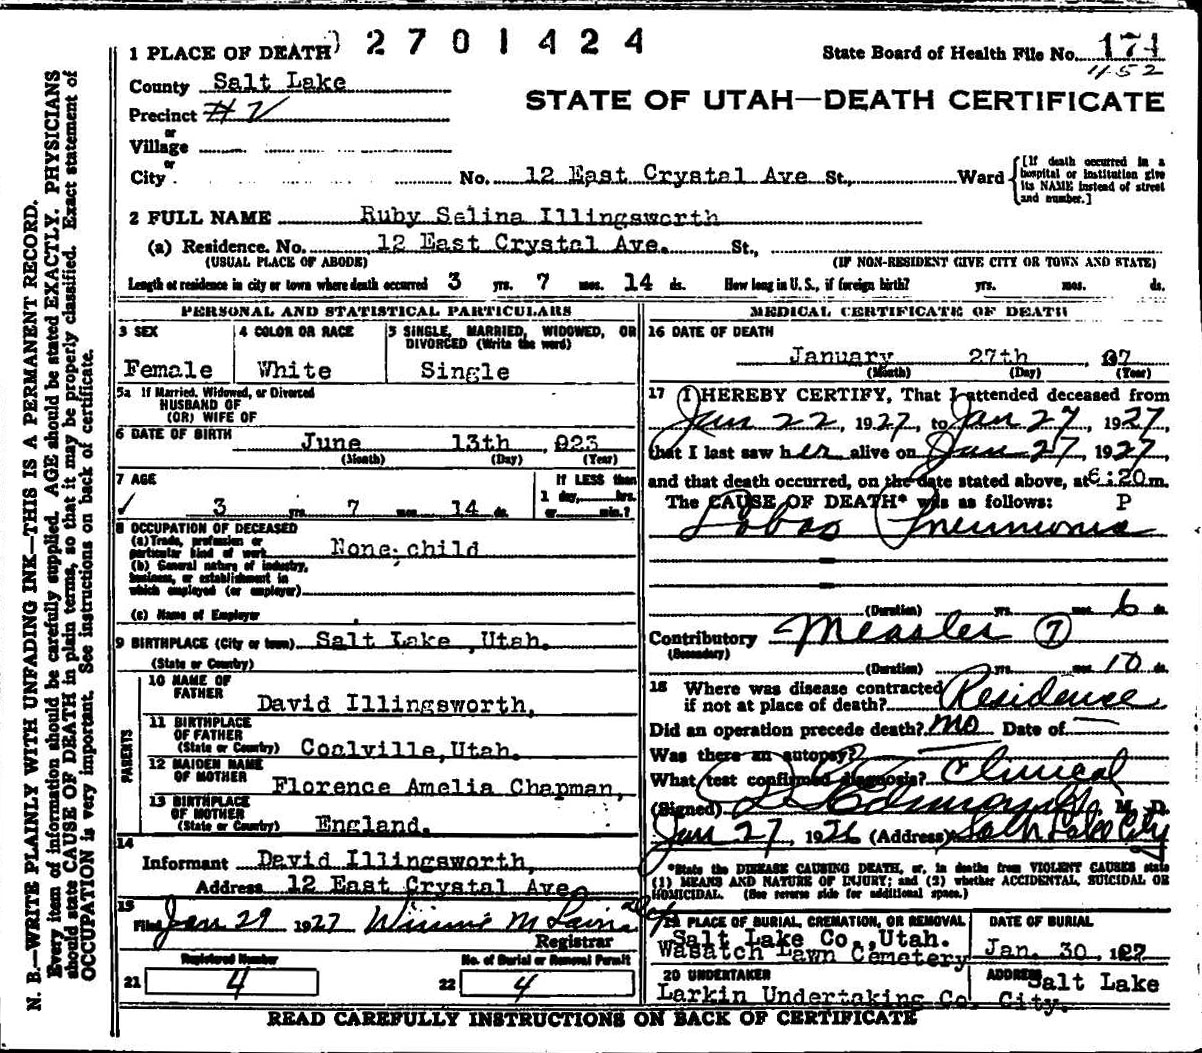 N. B.—WRITE PLAINLY WITH UNFADING INK—THIS IS A PERMANENT RECORD.
Every item of information should be carefully supplied. AGE should be stated EXACTLY. PHYSICIANS
should state CAUSE OF DEATH in plain terms, so that it may be properly classified. Exact statement of
OCCUPATION is very important. See instructions on back of certificate.
2701424
1 PLACE OF DEATH
State Board of Health File No. 174
452
County Salt Lake
STATE OF UTAH—DEATH CERTIFICATE
Precinct #2
or
Village
or
City No. 12 East Crystal Ave St., Ward
[If death occurred in a
hospital or institution give
its NAME instead of street
and number.]
2 FULL NAME Ruby Selina Illingsworth
(a) Residence. No. 12 East Crystal Ave. St.,
(USUAL PLACE OF ABODE) (IF NON-RESIDENT GIVE CITY OR TOWN AND STATE)
Length of residence in city or town where death occurred 3 yrs. 7 mos. 14 ds. How long in U. S., if foreign birth? yrs. mos. ds.
PERSONAL AND STATISTICAL PARTICULARS
3 SEX
Female
4 COLOR OR RACE
White
5 SINGLE, MARRIED, WIDOWED, OR
DIVORCED (Write the word)
Single
5a If Married, Widowed, or Divorced
HUSBAND OF
(OR) WIFE OF
6 DATE OF BIRTH
June 13th 923
(Month) (Day) (Year)
7 AGE
3 yrs. 7 mos. 14 ds.
If LESS than
1 day, hrs.
or min.?
8 OCCUPATION OF DECEASED
(a) Trade, profession or
particular kind of work None; child
(b) General nature of industry,
business, or establishment in
which employed (or employer)
(c) Name of Employer
9 BIRTHPLACE (City or town) Salt Lake ,Utah.
(State or Country)
PARENTS
10 NAME OF
FATHER
David Illingsworth,
11 BIRTHPLACE
OF FATHER
(State or Country) Coalville,Utah.
12 MAIDEN NAME
OF MOTHER
Florence Amelia Chapman,
13 BIRTHPLACE
OF MOTHER
(State or Country) England.
14
Informant David Illingsworth,
Address 12 East Crystal Ave,
15
Filed Jan 29 1927
Registrar
Registered Number
21 4
No. of Burial or Removal Permit
22 4
MEDICAL CERTIFICATE OF DEATH
16 DATE OF DEATH
January 27th
(Month) (Day) (Year)
17 I HEREBY CERTIFY, That I attended deceased from
Jan 22, 1927, to Jan 27, 1927,
that I last saw her alive on Jan 27, 1927,
and that death occurred, on the date stated above, at 6:20 m.
The CAUSE OF DEATH* was as follows: P
Lobar Pneumonia
(Duration) yrs. mos. 6 ds.
Contributory Measles 7
(Secondary)
(Duration) yrs. mos. 10 ds.
18 Where was disease contracted
if not at place of death? Residence
Did an operation precede death? no Date of —
Was there an autopsy?
What test confirmed diagnosis? Clinical
(Signed) M. D.
Jan 27, 1926 (Address) Salt Lake City
*State the DISEASE CAUSING DEATH, or, in deaths from VIOLENT CAUSES state
(1) MEANS AND NATURE OF INJURY; and (2) whether ACCIDENTAL, SUICIDAL OR
HOMICIDAL. (See reverse side for additional space.)
19 PLACE OF BURIAL, CREMATION, OR REMOVAL
Salt Lake Co.,Utah.
Wasatch Lawn Cemetery
DATE OF BURIAL
Jan. 30, 1927
20 UNDERTAKER
Larkin Undertaking Co.
ADDRESS Salt Lake
City.
READ CAREFULLY INSTRUCTIONS ON BACK OF CERTIFICATE